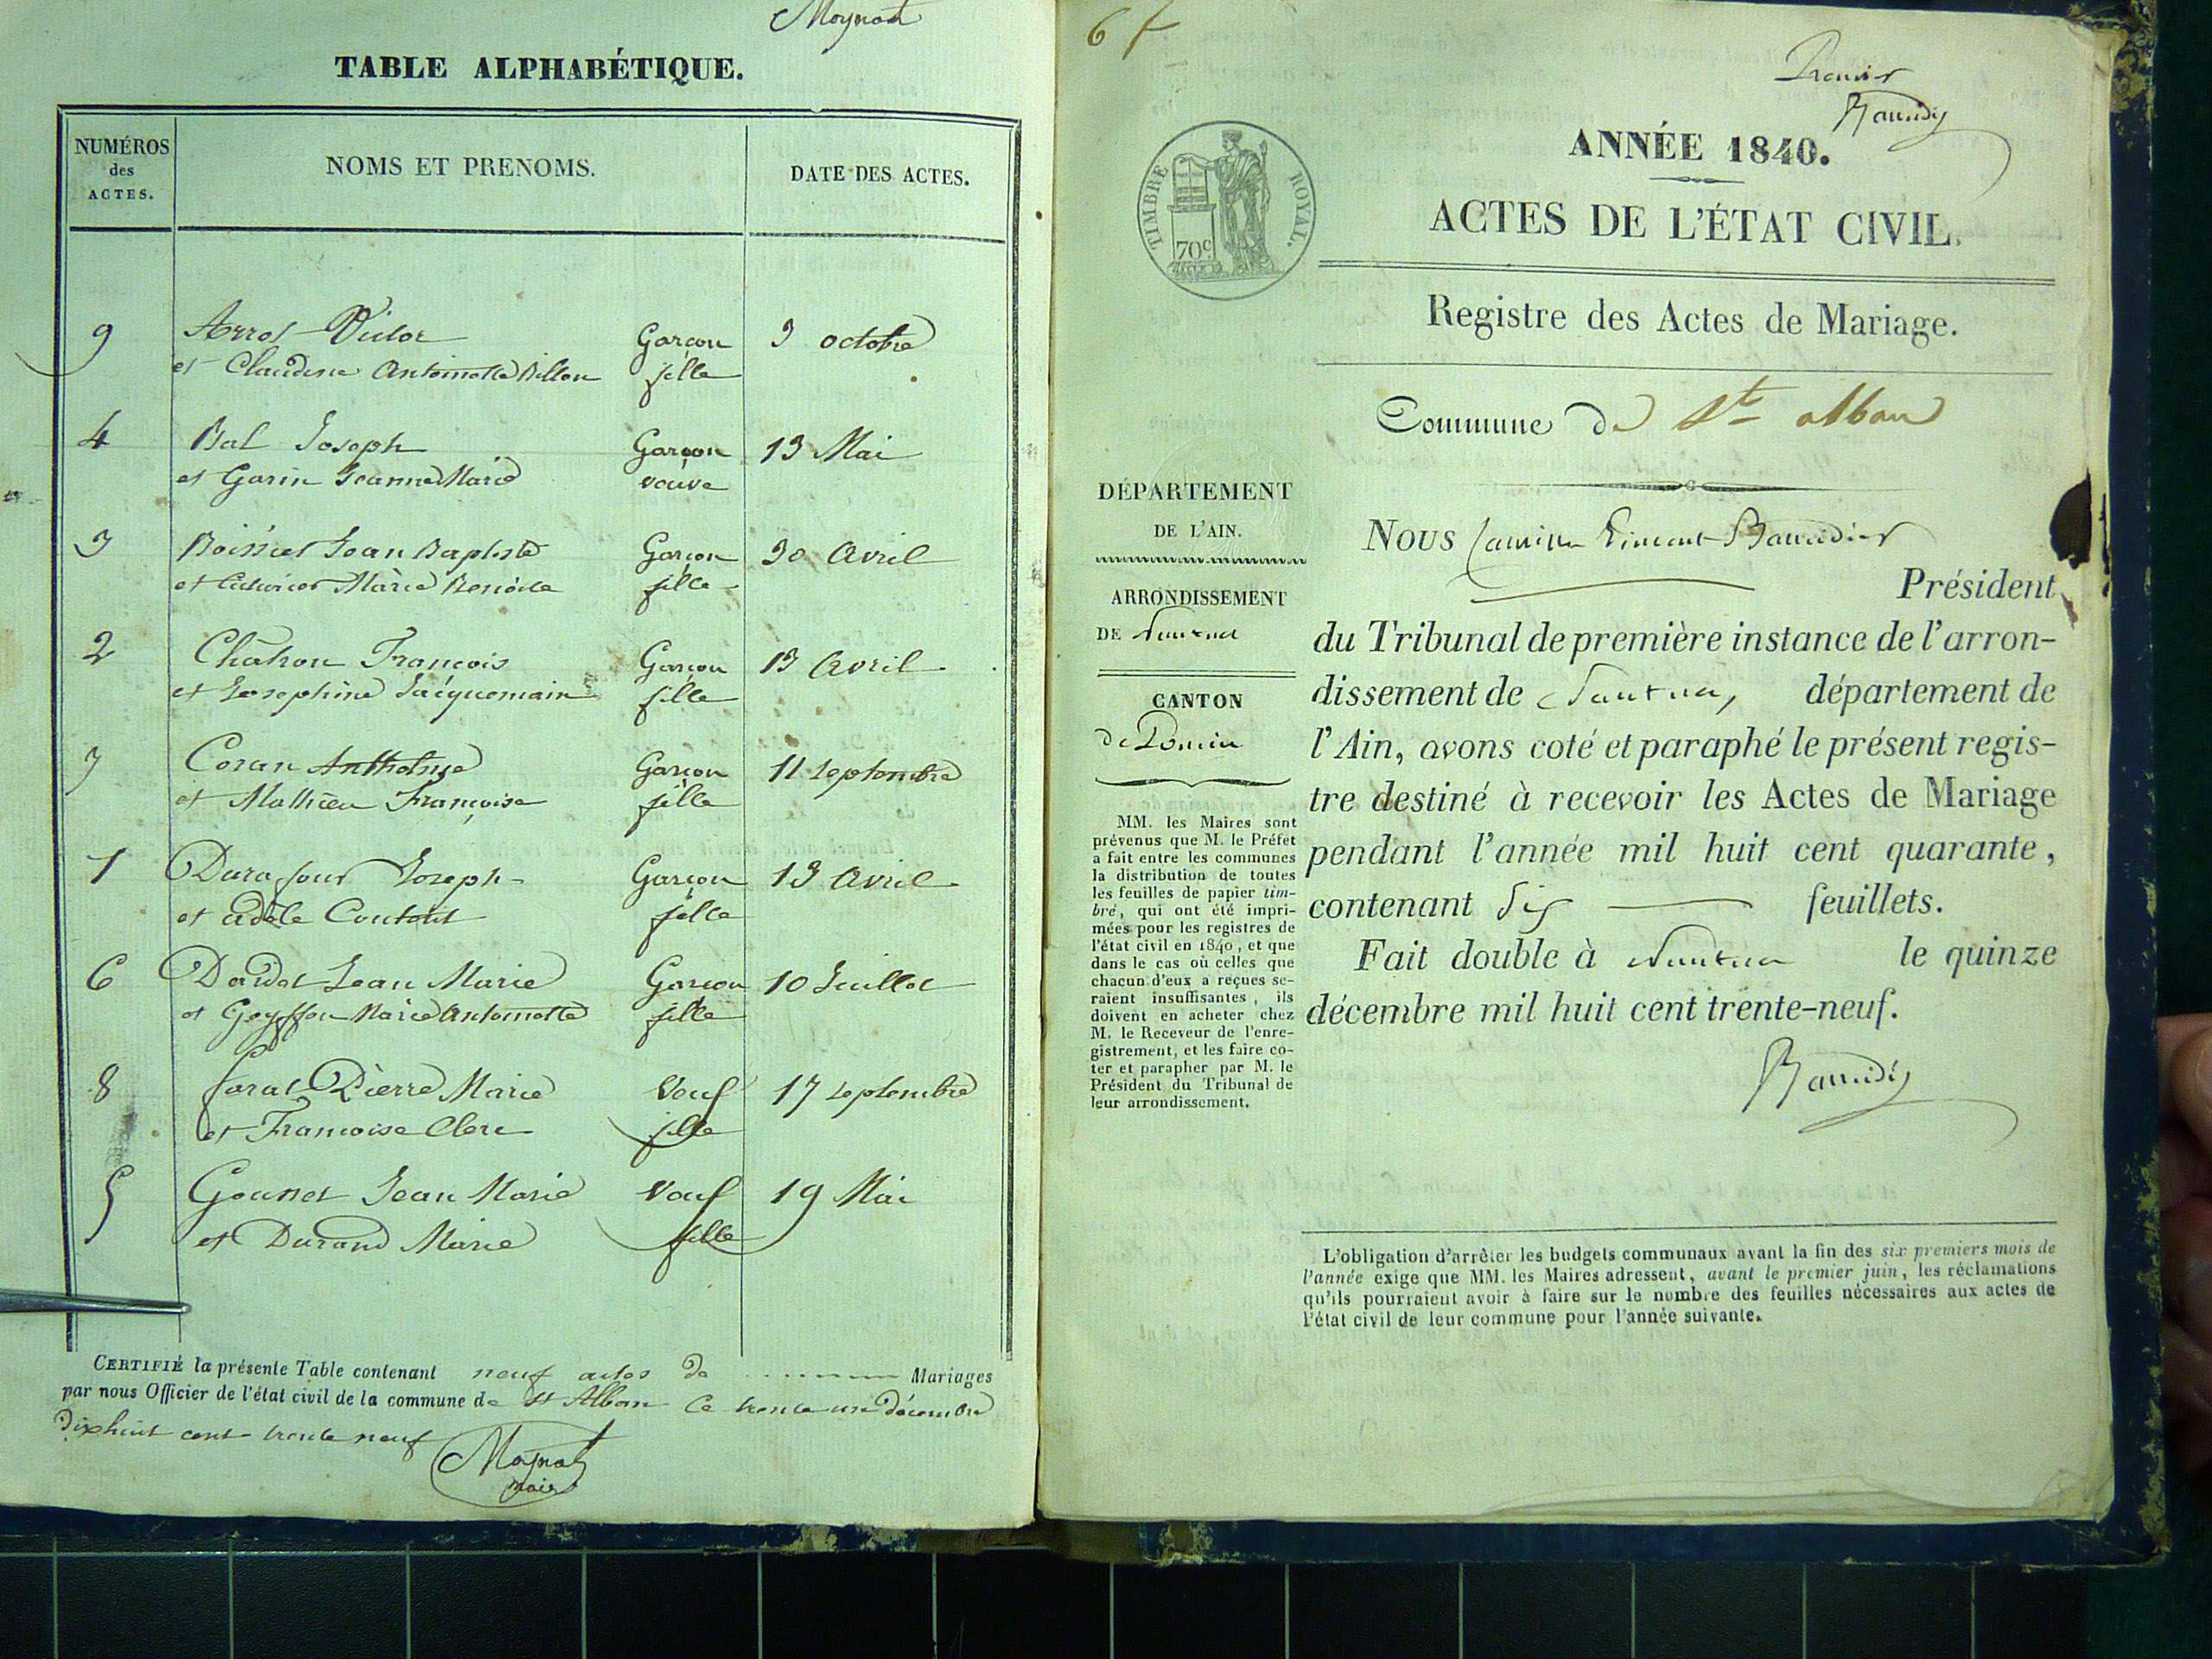 Moynat
TABLE ALPHABÉTIQUE.
NUMÉROS des ACTES.
NOMS ET PRENOMS.
DATE DES ACTES.
9 Victor Garçon 3 octobre
et Claudine Antoinette Billon fille
4 Bal Joseph Garçon 13 Mai
et Garin Jeanne Marie veuve
3 Jean Baptiste Garçon 30 Avril
et Marie Benoite fille
2 Chahon François Garçon 13 Avril
et Josephine Jacquemain fille
7 Coran Garçon 11 Septembre
et Mathieu Françoise fille
1 Durafour Joseph Garçon 13 Avril
et adèle fille
6 Jean Marie Garçon 10 Juillet
et Marie Antoinette fille
8 Pierre Marie Veuf 17 septembre
et Françoise Clerc fille
5 Jean Marie Veuf 19 Mai
et Durand Marie fille
CERTIFIÉ la présente Table contenant neuf actes de Mariages
par nous Officier de l'état civil de la commune de St Alban Ce trente un décembre
dixhuit cent trente neuf
Moynat
maire
6 f
Premier
Baudier
TIMBRE ROYAL.
70c
ANNÉE 1840.
ACTES DE L'ÉTAT CIVIL.
Registre des Actes de Mariage.
Commune de St alban
DÉPARTEMENT
DE L'AIN.
ARRONDISSEMENT
DE Nantua
CANTON
de Poncin
MM. les Maires sont
prévenus que M. le Préfet
a fait entre les communes
la distribution de toutes
les feuilles de papier tim-
bré, qui ont été impri-
mées pour les registres de
l'état civil en 1840, et que
dans le cas où celles que
chacun d'eux a reçues se-
raient insuffisantes, ils
doivent en acheter chez
M. le Receveur de l'enre-
gistrement, et les faire co-
ter et parapher par M. le
Président du Tribunal de
leur arrondissement.
NOUS Vincent
Président
du Tribunal de première instance de l'arron-
dissement de Nantua, département de
l'Ain, avons coté et paraphé le présent regis-
tre destiné à recevoir les Actes de Mariage
pendant l'année mil huit cent quarante,
contenant Six feuillets.
Fait double à Nantua le quinze
décembre mil huit cent trente-neuf.
L'obligation d'arrêter les budgets communaux avant la fin des six premiers mois de
l'année exige que MM. les Maires adressent, avant le premier juin, les réclamations
qu'ils pourraient avoir à faire sur le nombre des feuilles nécessaires aux actes de
l'état civil de leur commune pour l'année suivante.